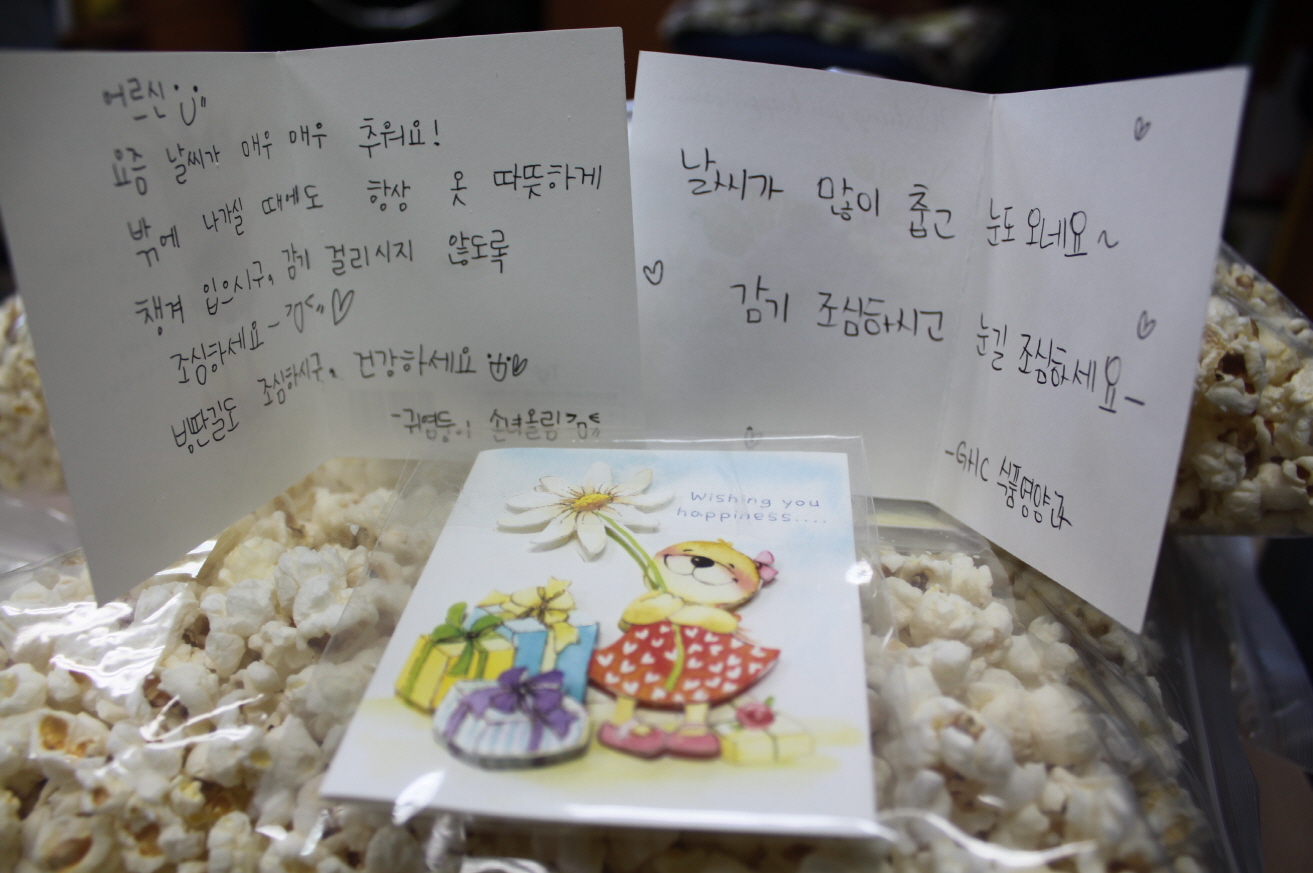 어르신
요즘 날씨가 매우 매우 추워요!
밖에 나가실 때에도 항상 옷 따뜻하게
챙겨 입으시구, 감기 걸리시지 않도록
조심하세요~
빙판길도 조심하시구, 건강하세요
-귀염둥이 손녀올림
날씨가 많이 춥고 눈도 오네요~
감기 조심하시고 눈길 조심하세요-
-GHC 식품영양과
Wishing you
happiness....